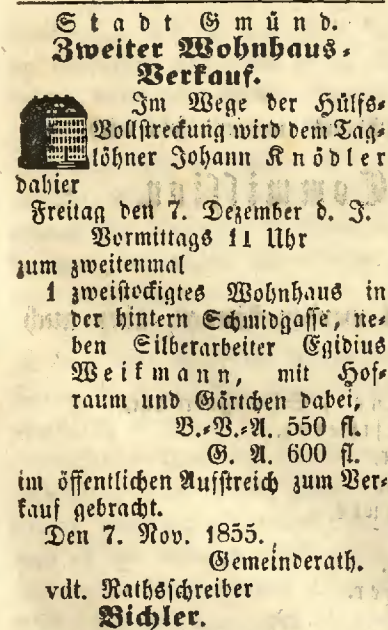 Stadt Gmünd.
Zweiter Wohnhaus-
Verkauf.
Im Wege der Hülfs-
Vollstreckung wird dem Tag-
löhner Johann Knödler
dahier
Freitag den 7. Dezember d. J.
Vormittags 11 Uhr
zum zweitenmal
1 zweistockigtes Wohnhaus in
der hintern Schmidgasse, ne-
ben Silberarbeiter Egidius
Weikmann, mit Hof-
raum und Gärtchen dabei,
B.-V.-A. 550 fl.
G. A. 600 fl.
im öffentlichen Aufstreich zum Ver-
kauf gebracht.
Den 7. Nov. 1855.
Gemeinderath.
vdt. Rathsschreiber
Bichler.